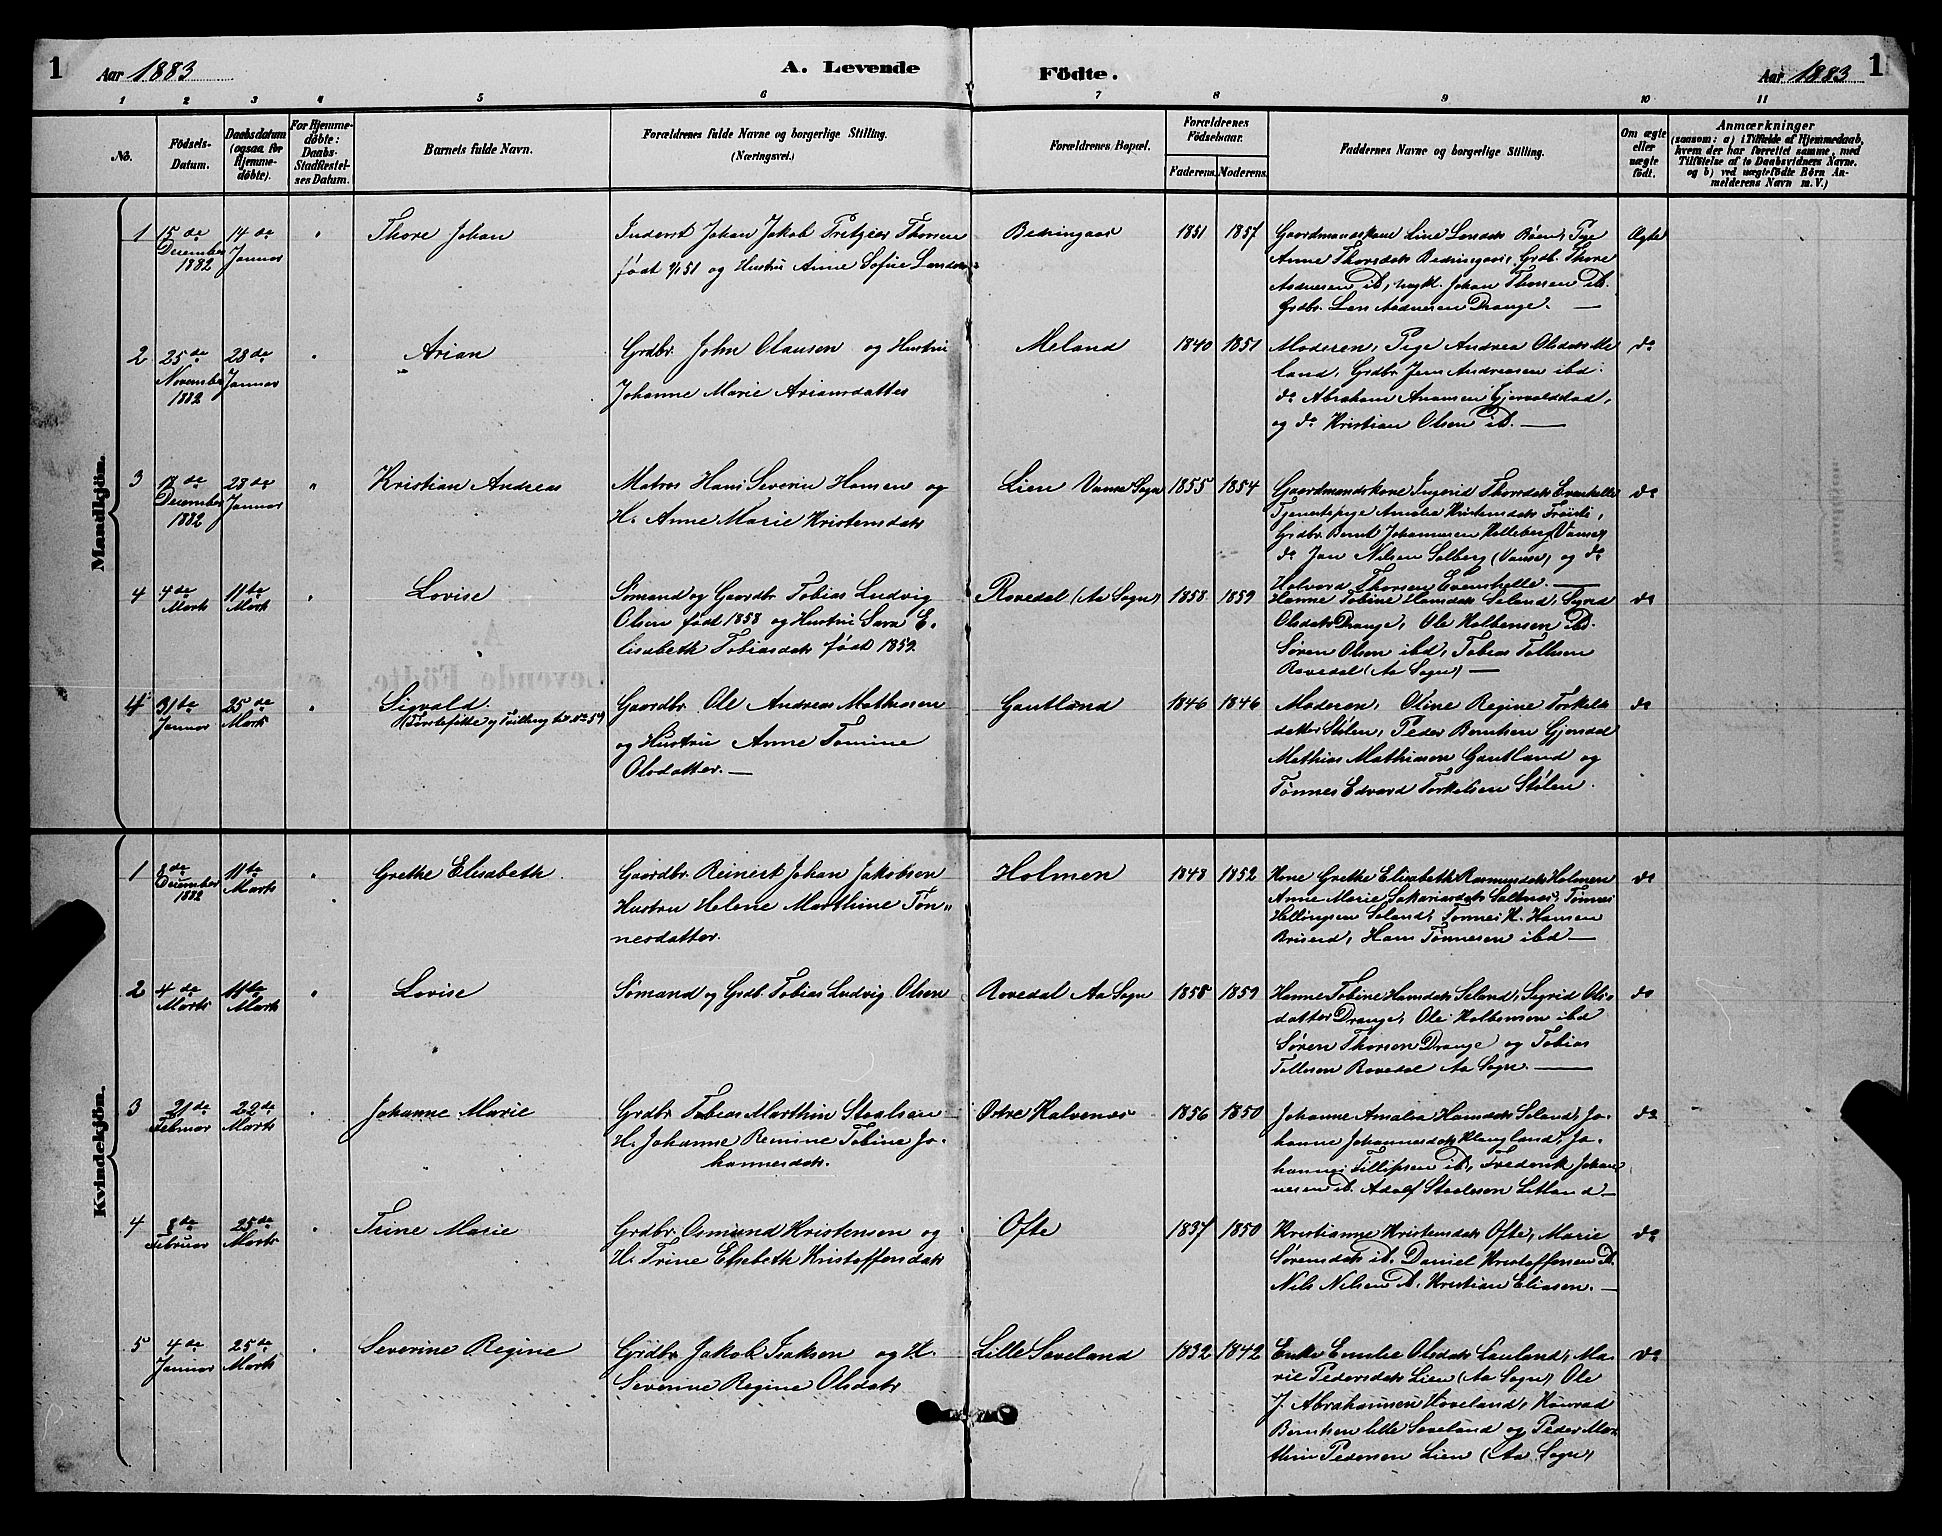 1 Aar 1883 A. Levende Födte. Aar 1883 1
1 2 3 4 5 6 7 8 9 10 11
No. Födsels-Datum. Daabsdatum (ogsaa for Hjemmedøbte). For Hjemmedøbte: Daabs-Stadfestelses Datum. Barnets fulde Navn. Forældrenes fulde Navne og borgerlige Stilling. (Næringsvei.) Forældrenes Bopæl. Forældrenes Födselsaar. Faderens. Moderens. Faddernes Navne og borgerlige Stilling. Om ægte eller uægte födt. Anmærkninger
(saasom: a) i Tilfælde af Hjemmedaab,
hvem der har forrettet samme, med
Tilföielse af to Daabsvidners Navne.
og b) ved uægtefödte Börn An-
melderens Navn m. V.)
Mandkjön.
1 15de December 1882 14de Januar " Thore Johan
Inderst Johan Jakob Thorsen
født 51 og Hustru Anne Sofie
1851 1857 Gaardmandskone Line Pige
Anne Thorsdatr Grdb. Thore
ibd, Johan Thorsen ibd.
Grdbr. Lars Drange. —
Ægte
2 25de November 1882 28de Januar " Arian
Grdbr. John Olausen og Hustru
Johanne Marie Ariansdatter
Meland 1840 1851 Moderen, Pige Andrea Olsdatr Me
land, Grdbr Jens Andreasen ibd.
do Abraham
og do Kristian Olsen ibd. —
do
3 December 1882 28de Januar " Kristian Andreas
Matros Hans Severin Hansen og
H. Anne Marie Kristensdatr
Lien Vanse Sogn 1855 1854 Gaardmandskone Ingerid Thorsdatr
Tjenestepige Amalia Kristensdatr
Grdbr. Bernt Johannesen (Vanse)
do Jan Nilsen Solberg (Vanse) og do
Halvord Thorsen —
do
4 4de Marts 11te Marts " Lovise
Sømand og Gaardbr Tobias Ludvig
Olsen født 1858 og Hustru Sara E-
lisabeth Tobiasdatr født 1859.
Rovedal (Aa Sogn) 1858 1859 Hanne Tobine Hansdatr Seland, Sigrid
Olsdatr Drange, Ole ibd.
Søren Olsen ibd, Tobias
Rovedal (Aa Sogn) —
do
4 31te Januar 25de Marts " Sigvald
(Førstefødte og Tvilling til No 5)
Gaardbr. Ole Andreas Mathiasen
og Hustru Anne Tomine
Olsdatter. —
Gautland 1846 1846 Moderen, Oline Regine Torkels
datter Stølen, Peder Berntsen
Mathias Mathiasen Gautland og
Tønnes Edvard Torkelsen Stølen.
do
Kvindekjön.
1 8de December 1882 11te Marts " Grethe Elisabeth.
Gaardbr. Reinert Johan Jakobsen
Hustru Helene Marthine Tøn-
nesdatter.
Holmen 1848 1852 Kone Grethe Elisabeth Rasmusdatr Holmen
Anne Marie Sakariasdatr Tønnes
Seland, Tønnes H. Hansen
Briseid, Hans Tønnesen ibd —
do
2 4de Marts 11te Marts " Lovise
Sømand og Grdb. Tobias Ludvig Olsen
Rovedal Aa Sogn 1858 1859 Hanne Tobine Hansdatr Seland, Sigrid Ols-
datter Drange, Ole ibd
Søren Thorsen Drange og Tobias
Rovedal Aa Sogn. —
do
3 21de Februar 22de Marts " Johanne Marie
Grdbr. Tobias Marthin Staalsen
H. Johanne Remine Tobine Jo-
hannesdatr.
1856 1850 Johanne Amalia Hansdatr Seland, Jo-
hanne Johannesdatr Klungland, Jo-
hannes Fillipsen ibd, Frederik Johan
nesen ibd. Adolf Staalesen Litland —
do
4 8de Februar 25de Marts " Trine Marie
Grdbr. Osmund Kristensen og
H. Trine Elsebeth Kristoffersdatr
Ofte 1837 1850 Kristianne Kristensdatr Ofte, Marie
Sørensdatr ibd. Daniel Kristoffersen ibd.
Nils Nilsen ibd. Kristian Eliasen. —
do
5 4de Januar 25de Marts " Severine Regine
Grdbr Jakob Isaksen og H.
Severine Regine Olsdatr
Lille Soveland 1832 1842 Enke Emilie Olsdatr Lauland, Ma-
rie Pedersdatr Lien (Aa Sogn) Ole
J. Abrahamsen Hoveland, Konrad
Berntsen lille Soveland og Peder Mar
thin Pedersen Lien (Aa Sogn)
do